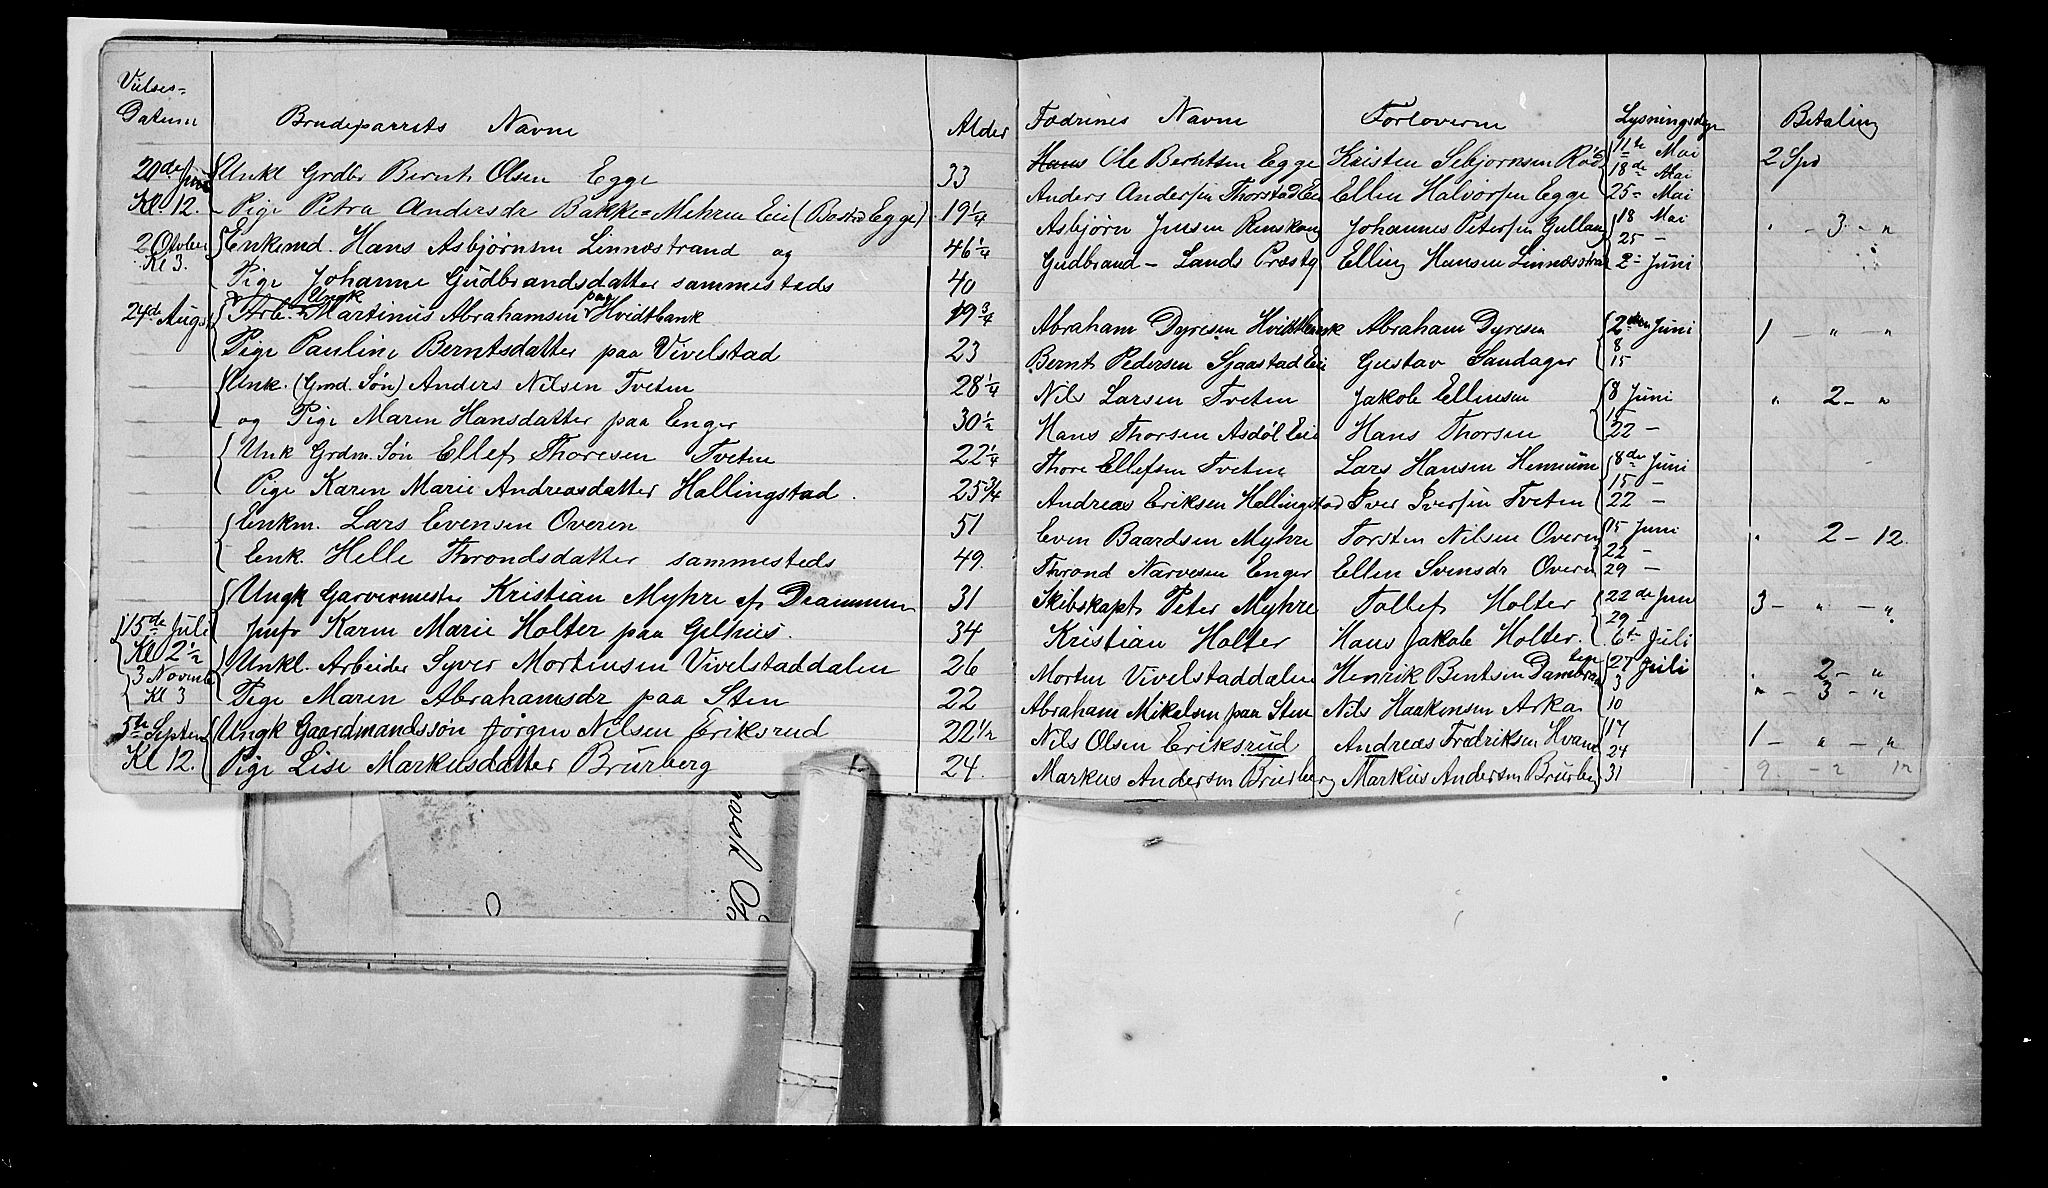 Vielses=
Datum Brudeparrets Navne Alder Fædrenes Navne Forloverne Lysningsdage Betaling
20de Juni Unkl Grdbr Bernt Olsen Egge 33 Hans Ole Berntsen Egge Kristen Sebjørnsen Rød 11te Mai 2 Spd
18de Mai
Kl. 12. Pige Petra Andersdr Bakke=Mehren Eie (Bosat Egge) 19 1/4 Anders Andersen Thorstad Eie Ellen Halvorsen Egge 25 Mai
2 Otober Enkemd. Hans Asbjørnsen Linnæstrand og 46 1/4 Asbjørn Jensen Johannes Petersen Gullaug 18 Mai " - 3 - "
Kl 3. 25 -
Pige Johanne Gudbrandsdatter sammesteds 40 Gudbrand - Lands Præstg Elling Hansen Linnæsstrand 2 Juni
24de Aug Arb. Ungk Martinus Abrahamsen paa Hvidtbank 19 3/4 Abraham Dyresen Hvidtbank Abraham Dyresen 2den Juni 1 - " - "
8
Pige Pauline Berntsdatter paa Vivelstad 23 Bernt Pedersen Sjaastad Eie Gustav Sandager 15
Unk. (Grmd. Søn) Anders Nilsen Tveten 28 1/4 Nils Larsen Tveten Jakob Ellensen 8 Juni " 2 - "
15
og Pige Maren Hansdatter paa Enger 30 1/2 Hans Thorsen Asdøl Eie Hans Thorsen 22 -
Unk Grdm. Søn Ellef Thoresen Tveten 22 1/4 Thore Ellefsen Tveten Lars Hansen Hennum 8de Juni
15 -
Pige Karen Marie Andreasdatter Hallingstad . 25 3/4 Andreas Eriksen Hellingstad Iver Iversen Tveten 22 -
Enkm. Lars Evensen Overen 51 Even Baardsen Myhre Torsten Nilsen Overen 15 Juni " 2 - 12.
22 -
Enk. Helle Throndsdatter sammesteds 49. Thrond Narvesen Enger Ellen Svensdr Overen 29 -
Ungk Garvermester Kristian Myhre af Drammen 31 Skibskapt Peter Myhre Tollef Holter 22de Juni 3 - " - "
29 -
15de Juli Jmfr Karen Marie Holter paa Gelhus. 34 Kristian Holter Hans Jakob Holter. 6te Juli
Kl 2 1/2 Unkl. Arbeider Syver Mortensen Vivelstaddalen 26 Morten Vivelstaddalen Henrik Bentsen 27 Juli " 2 - "
3 Novmb 3 " - 3 - "
Kl 3 Pige Maren Abrahamsdr paa Sten 22 Abraham Mikelsen paa Sten Nils Haakensen Arka 10
5te Septem Ungk Gaardmandssøn Jørgen Nilsen Eriksrud 22 1/2 Nils Olsen Eriksrud Andreas Fredriksen Hvam 17 1 - " - "
24
Kl 12. Pige Lise Markusdatter Brurberg 24. Markus Andersen Brurberg Markus Andersen Brurberg 31 9 - 2 12